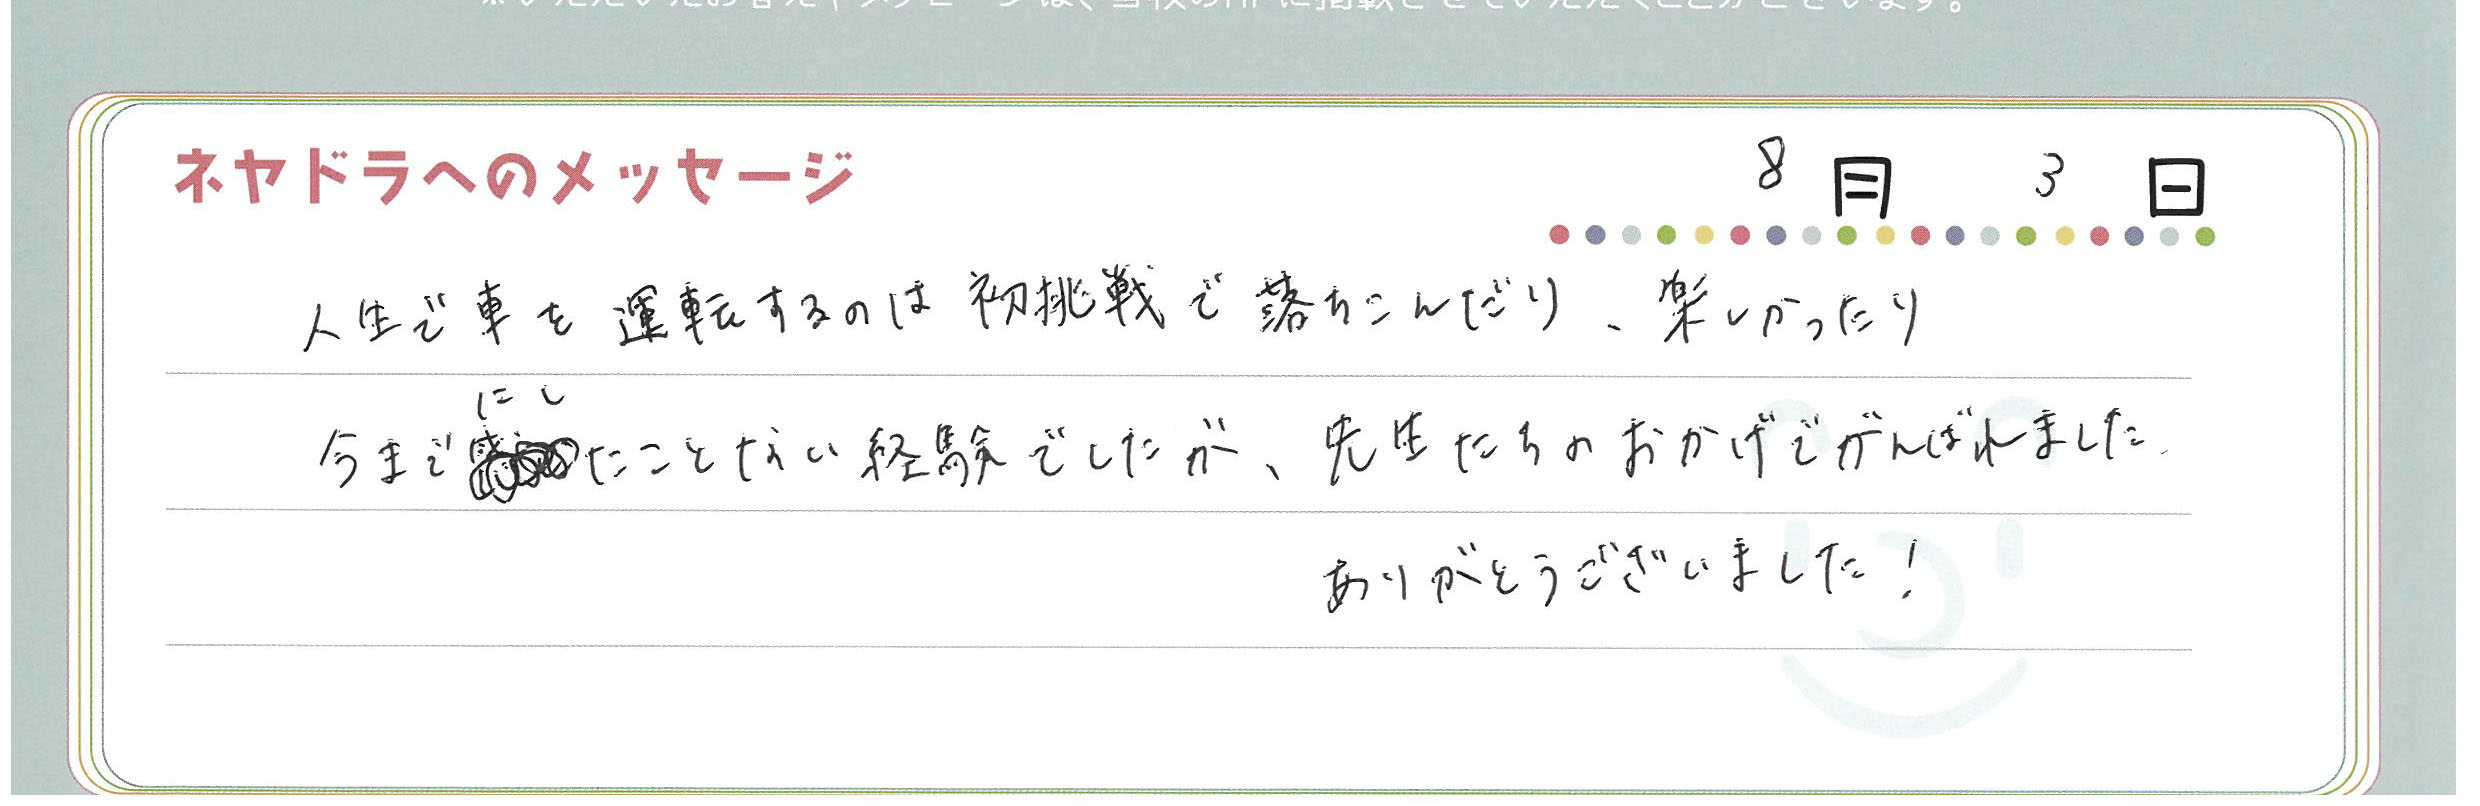 ネヤドラへのメッセージ
8月 3日
人生で車を運転するのは初挑戦で落ちこんだり、楽しかったり
今までにしたことない経験でしたが、先生たちのおかげでがんばれました
ありがとうございました!